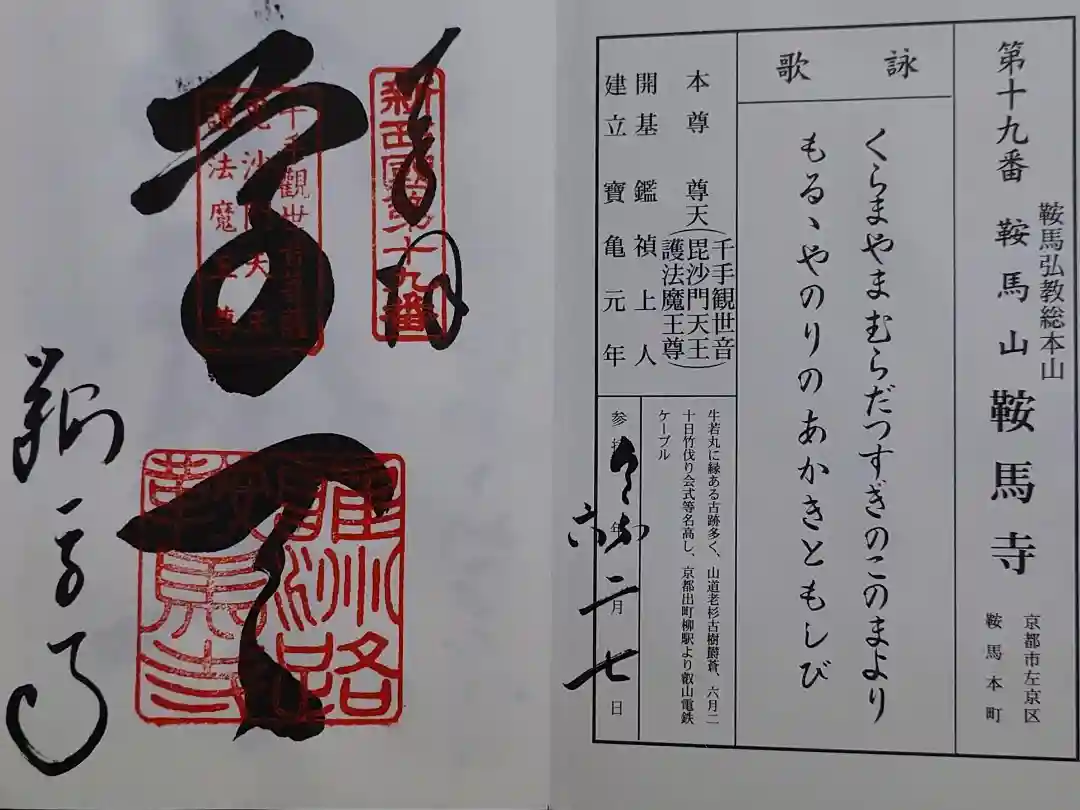 第十九番 鞍馬山 鞍馬寺
鞍馬弘教総本山
京都市左京区
鞍馬本町
詠歌
くらまやまむらだつすぎのこのまより
もるゝやのりのあかきともしび
本尊 尊天(千手観世音
毘沙門天王
護法魔王尊)
開基 鑑禎上人
建立 寶亀元年
牛若丸に縁ある古跡多く、山道老杉古樹欝蒼、六月二
十日竹伐り会式等名高し、京都出町柳駅より叡山電鉄
ケーブル
年六
二月
七日
奉拝
新西國第十九番
千手觀世音菩薩
毘沙門天王
護法魔王尊
尊天
雍州路
鞍馬寺
鞍馬寺